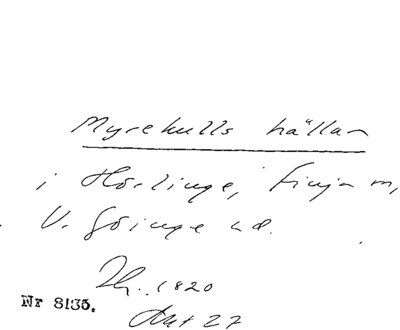 Myrekulls hällan
i Hörlinge, Finja m,
V. Göinge hd.
1820
Nr 8135.
27